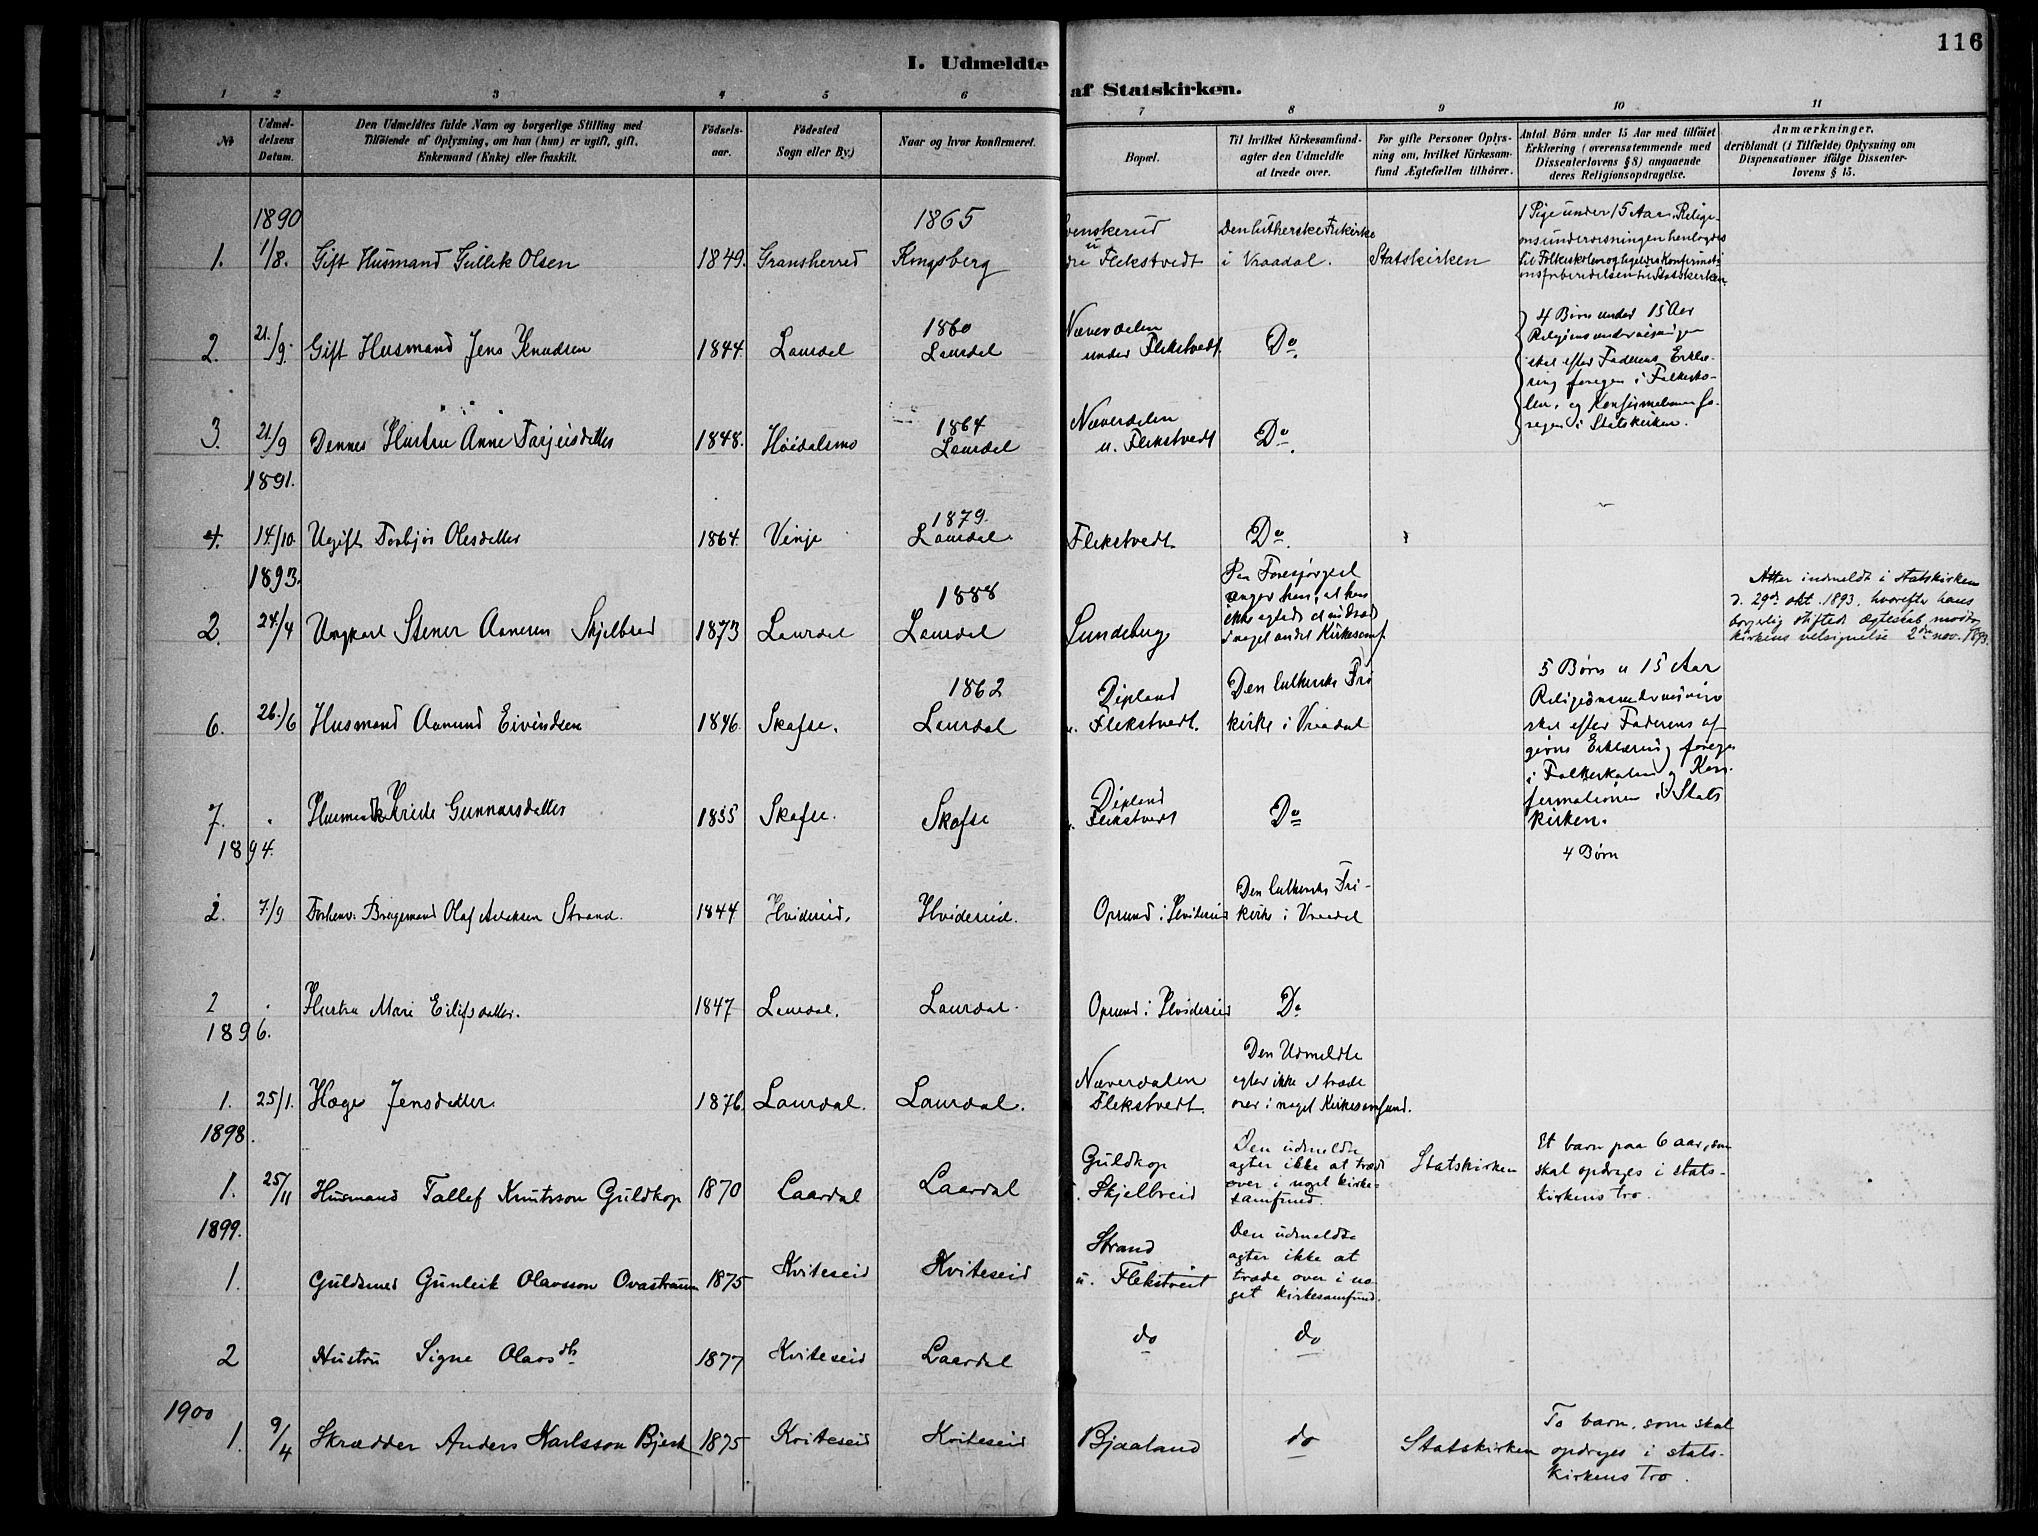 116
I. Udmeldte af Statskirken.
1 2 3 4 5 6 7 8 9 10 11
No
Udmel-
delsens
Datum.
Den Udmeldtes fulde Navn og borgerlige Stilling med
Tilføiende af Oplysning, om han (hun) er ugift, gift,
Enkemand (Enke) eller fraskilt.
Fødsels-
aar.
Fødested
Sogn eller By.)
Naar og hvor konfirmeret.
Bopæl.
Til hvilket Kirkesamfund
agter den Udmeldte
at træde over.
For gifte Personer Oplys-
ning om, hvilket Kirkesam-
fund Ægtefællen tilhører.
Antal Børn under 15 Aar med tilføiet
Erklæring (overensstemmende med
Dissenterlovens § 8) angaaende
deres Religionsopdragelse.
Anmærkninger,
deriblandt (i Tilfælde) Oplysning om
Dispensationer ifølge Dissenter-
lovens § 15.
1890
1. 1/8. Gift Husmand Gullik Olsen 1849. Gransherred 1865 Kongsberg
Flekstvedt
Den lutherske Frikirke
i Vraadal.
Statskirken
1 Pige under 15 Aar. Religi-
onsundervisningen henlægges
til Folkeskolen og ligeledes Konfirmati-
onsforberedelsen til Statskirken.
2. 21./9. Gift Husmand Jens Knudsen 1844. Laurdal 1860 Laurdal
Næverdalen
under Flekstvedt.
Do.
4 Børn under 15 Aar
Religionsundervisningen
skal efter Faderens Erklæ-
ring foregaa i Folkesko-
len, og Konfirmationen fo-
regaa i Statskirken.
3. 21/9 Dennes Hustru Anne Tarjeisdatter 1848. Høidalsmo 1864 Laurdal
Næverdalen
u. Flekstvedt
Do.
1891.
4. 14./10. Ugift Torbjør Olesdatter 1864. Vinje 1879. Laurdal.
Flekstvedt
Do.
1893.
2. 24./4 Ungkarl Stener Aanesen Skjelbred 1873 Laurdal 1888 Laurdal
Sundeberg
Paa Forespørgsel
angav han, at han
ikke agtede at indtræde
i noget andet Kirkesamf.
Atter indmeldt i statskirken
d. 29de okt. 1893, hvorefter hans
borgerlig stiftede ægteskab modtog
kirkens velsignelse 2den nov. 1893.
6. 26./6 Husmand Aanund Eivindsen 1846. Skafse. 1862 Laurdal
Dipland
u. Flekstvedt.
Den lutherske Fri
kirke i Vraadal
5 Børn u 15 Aar
Religionsundervisnin
skal efter Faderens af-
givne Erklæring foregaa
i Folkeskolen og Kon-
firmationen i Stats
kirken.
7. Gunnarsdatter 1855 Skafse. Skafse
Dipland
u. Flekstvedt
Do
1894.
2. 7/9 Forhenv. Brugsmand Olaf Aslaksen Strand. 1844 Hvideseid. Hvideseid.
Oprund i Hvideseid
Den lutherske Fri-
kirke i Vraadal
4 Børn
2 Hustru Mari Eilifsdatter. 1847 Laurdal. Laurdal.
Oprund i Hvideseid
Do
1896.
1. 25/1. Hæge Jensdatter 1876 Laurdal. Laurdal.
Næverdalen
Flekstvedt.
Den Udmeldte
agter ikke at træde
over i noget Kirkesamfund.
1898.
1. 25/11 Husmand Tallef Knutsson Guldkop 1870 Laardal Laardal
Guldkop
u. Skjelbreid
Den udmeldte
agter ikke at træde
over i noget kirke-
samfund.
Statskirken
Et barn paa 6 aar, som
skal opdrages i stats-
kirkens tro.
1899.
1. Guldsmed Gunleik Olavsson Ovastraum 1875 Kviteseid Kviteseid
Strand
u. Flekstveit
Den udmeldte
agter ikke at
træde over i no-
get kirkesamfund.
2 Hustru Signe Olavsdtr 1877 Kviteseid Laardal
do do
1900
1. 9/4 Skrædder Anders Karlsson Bjerk 1875 Kviteseid Kviteseid
Bjaaland
do
Statskirken
To barn, som skal
opdrages i stats-
kirkens tro.